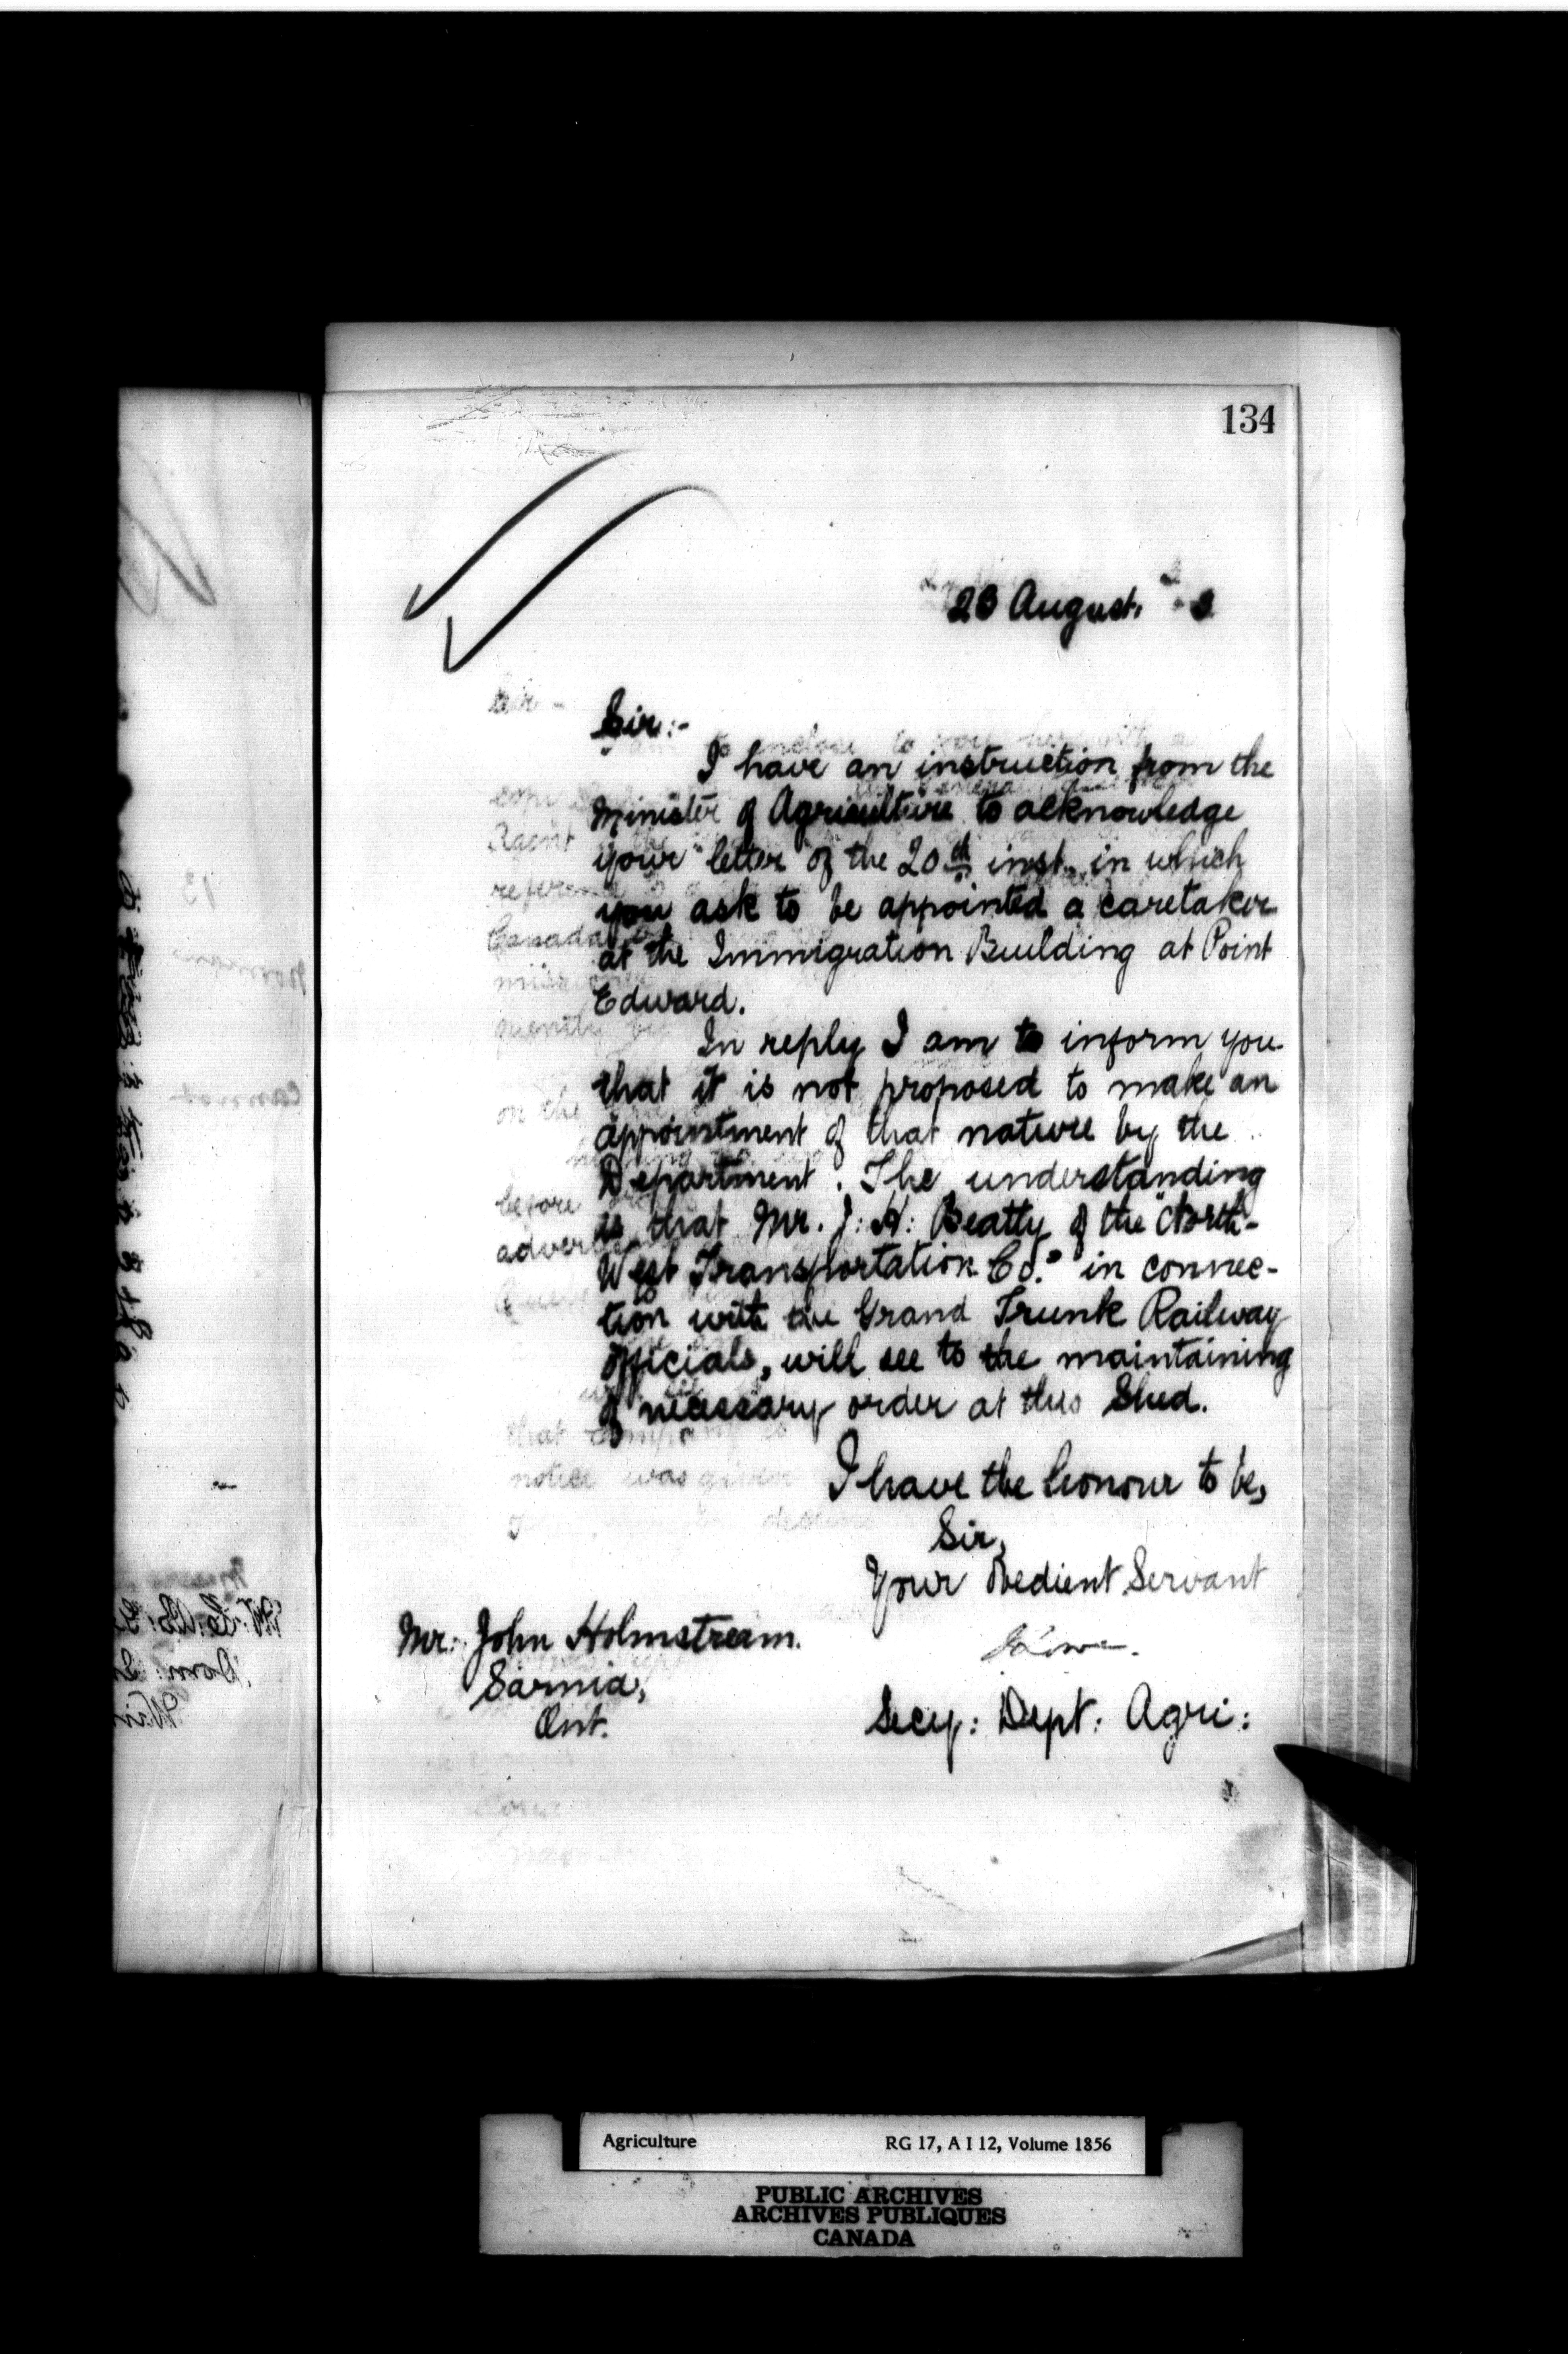 134
23 August.
Sir:-
I have an instruction from the
Minister of Agriculture to acknowledge
your letter of the 20th inst. in which
you ask to be appointed a caretaker
at the Immigration Building at Point
Edward.
In reply I am to inform you
that it is not proposed to make an
appointment of that nature by the
Department. The understanding
is that Mr. J. H. Beatty of the "North-
West Transportation Co." in connec-
tion with the Grand Trunk Railway
officials, will see to the maintaining
of necessary order at this Shed.
I have the honour to be,
Sir,
Your Obedient Servant
Lowe
Mr. John Holmstream.
Sarnia,
Ont.
Secy: Dept: Agri:
Agriculture RG 17, A I 12, Volume 1856
PUBLIC ARCHIVES
ARCHIVES PUBLIQUES
CANADA